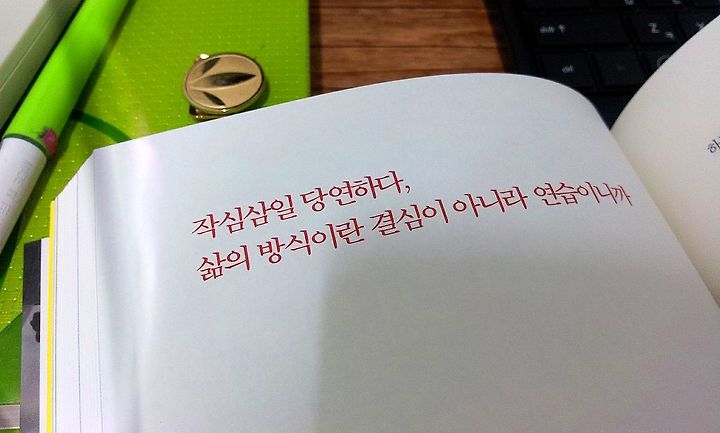 작심삼일 당연하다,
삶의 방식이란 결심이 아니라 연습이니까
하
ctrl